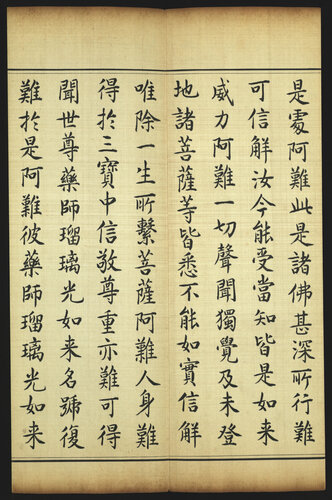 是處阿難此是諸佛甚深所行難
可信解汝今能受當知皆是如来
威力阿難一切聲聞獨覺及未登
地諸菩薩等皆悉不能如實信解
唯除一生所繫菩薩阿難人身難
得於三寶中信敬尊重亦難可得
聞世尊藥師瑠璃光如来名號復
難於是阿難彼藥師瑠璃光如来